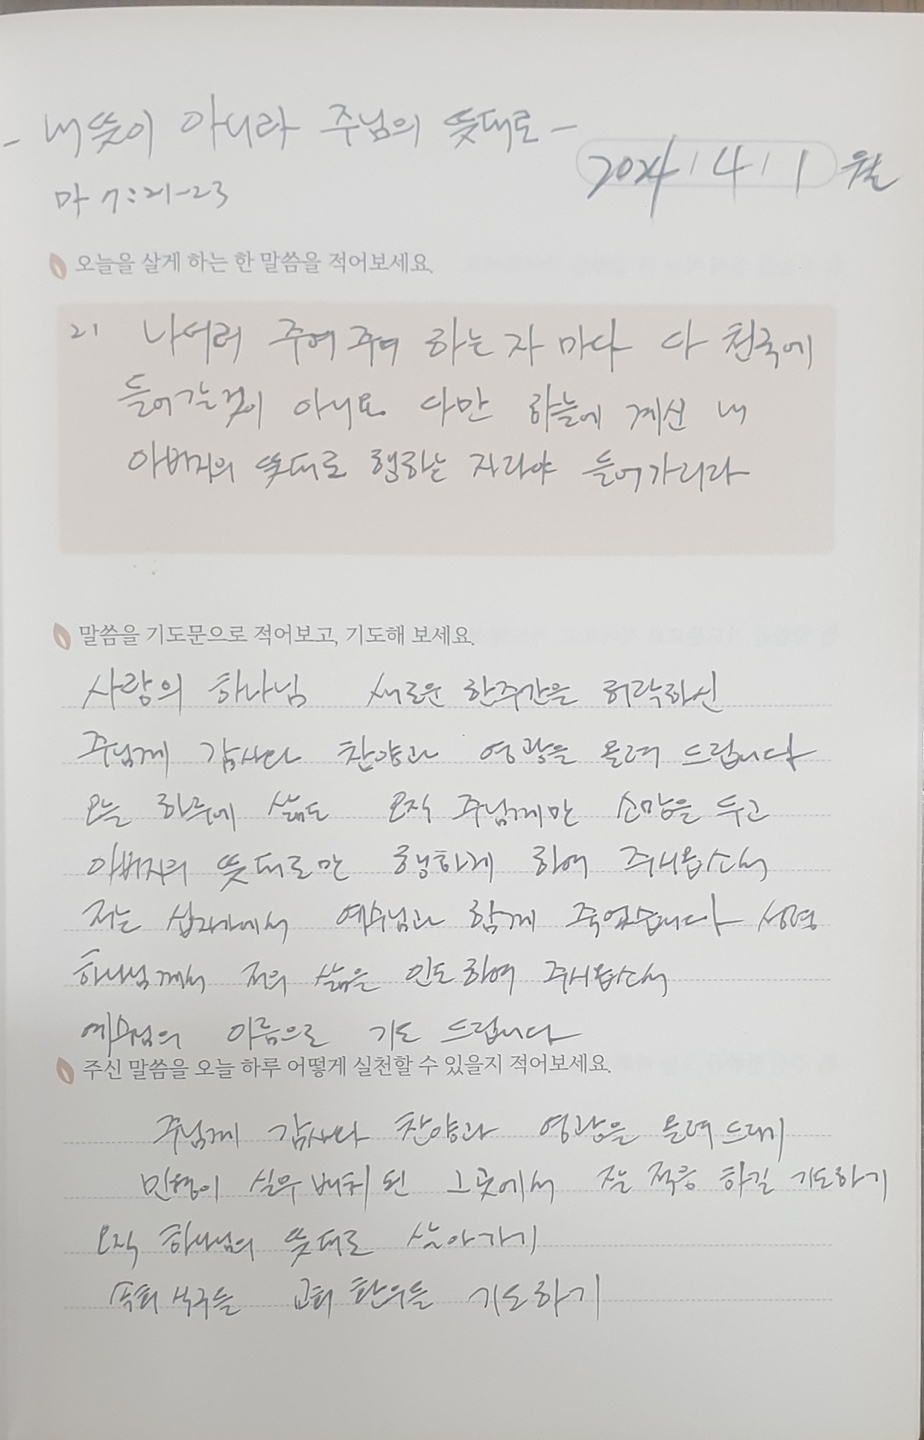 - 내 뜻이 아니라 주님의 뜻대로 -
2024 / 4 / 1 월
마 7:21-23
오늘을 살게 하는 한 말씀을 적어보세요.
21 나더러 주여 주여 하는 자 마다 다 천국에
들어갈것이 아니요 다만 하늘에 계신 내
아버지의 뜻대로 행하는 자라야 들어가리라
말씀을 기도문으로 적어보고, 기도해 보세요.
사랑의 하나님 새로운 한주간을 허락하신
주님께 감사와 찬양과 영광을 올려 드립니다
오늘 하루에 삶도 오직 주님께만 소망을 두고
아버지의 뜻대로만 행하게 하여 주시옵소서
저는 십자가에서 예수님과 함께 죽었습니다 성령
하나님께서 저의 삶을 인도하여 주시옵소서
예수님의 이름으로 기도 드립니다
주신 말씀을 오늘 하루 어떻게 실천할 수 있을지 적어보세요.
주님께 감사와 찬양과 영광을 올려 드리기
민형이 실무 배치 된 그곳에서 잘 적응 하길 기도하기
오직 하나님의 뜻대로 살아가기
속회 식구들 교회 환우들 기도하기